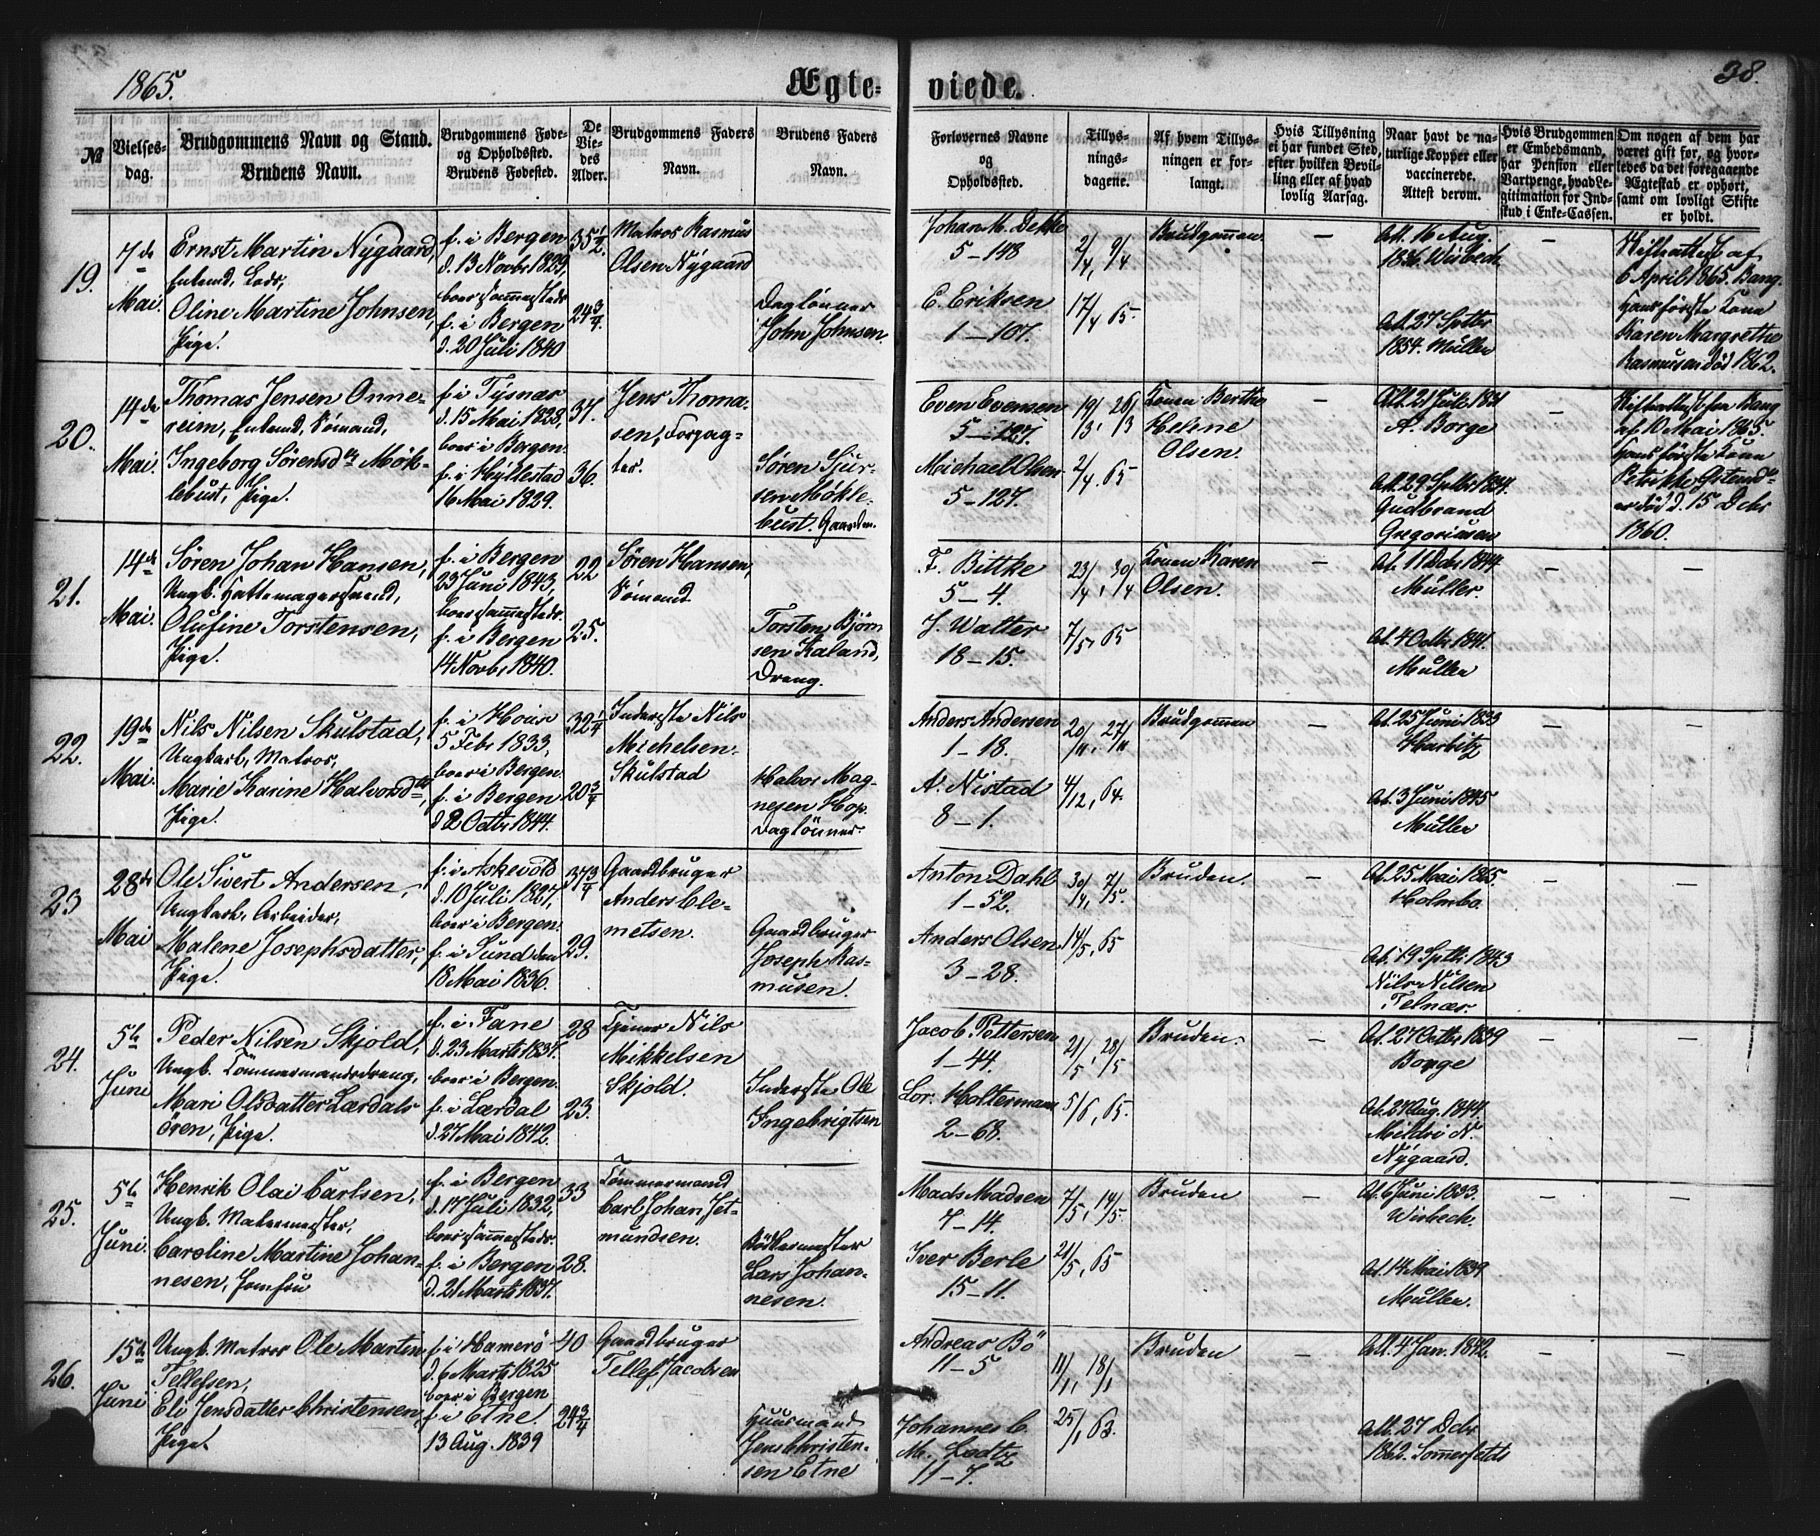 1865.
Ægte-
viede.
38.
№
Vielses-
dag.
Brudgommens Navn og Stand.
Brudens Navn.
Brudgommens Føde-
og Opholdssted.
Brudens Fødested.
De
Vie-
des
Alder.
Brudgommens Faders
Navn.
Brudens Faders
Navn.
Forlovernes Navne
og
Opholdssted.
Tillys-
nings-
dagene.
Af hvem Tillys-
ningen er for-
langt.
Hvis Tillysning
ei har fundet Sted,
efter hvilken Bevil-
ling eller af hvad
lovlig Aarsag.
Naar havt de na-
turlige Kopper eller
vaccinerede.
Attest derom.
Hvis Brudgommen
er Embedsmand,
har Pension eller
Vartpenge, hvad Le-
gitimation for Ind-
skud i Enke-Cassen.
Om nogen af dem har
været gift før, og hvor-
ledes da det foregaaende
Ægteskab er ophørt,
samt om lovligt Skifte
er holdt.
19.
7de
Mai.
Ernst Martin Nygaard,
Enkemd,
Oline Martine Johnsen,
Pige.
f. i Bergen
d. 13 Novbr 1829,
boer sammesteds
f. i Bergen
d. 20 Juli 1840
35 1/2
24 3/4
Matros Rasmus
Olsen Nygaard
Daglønner
John Johnsen
Johan M. Dekke
5-148
E. Eriksen
1-107.
2/4, 9/4
17/4 65.
Brudgommen
—
Att. 16 Aug.
1836 Wisbech
Att. 27 Septbr
1854. Müller
—
Skifteattest af
6 April 1865. Bang.
Hans første Kone
Karen Margrethe
Rasmusen død 1862.
20.
14de
Mai.
Thomas Jensen Onne-
reim, Enkemd, Sømand,
Ingeborg Sørensdtr Møk-
lebust, Pige.
f. i Tysnæs
d. 15 Mai 1828,
boer i Bergen.
f. i Hyllestad
16 Mai 1829.
37.
36.
Jens Thoma-
sen, Forpag-
ter.
Søren Sjur-
sen Møkle-
bust. Gaardm.
Even Evensen
5-127.
Michael Olsen
5-127.
19/3, 26/3
2/4. 65
Konen Berthe
Helene
Olsen.
—
A. Borge
Att. 29 Septbr 1834.
Gudbrand
Gregoriusen
—
Skifteattest fra Bang
af 10 Mai 1865.
Hans første Kone
er død d. 15 Decbr
1860.
21.
14de
Mai.
Søren Johan Hansen,
Ungk. Hattemagersvend,
Olufine Torstensen,
Pige.
f. i Bergen
23 Juni 1843,
boer sammesteds.
f. i Bergen
14 Novbr. 1840.
22
25.
Søren Hansen,
Sømand.
Torsten Bjørn
sen Kaland,
Dreng.
F. Bittke
5-4.
J. Walter
18-15.
23/4, 30/4
7/5, 65
Konen Karen
Olsen.
—
At. 11 Dcbr 1844
Müller.
At. 4 Octbr 1841.
Müller
—
—
22.
19de
Mai.
Nils Nilsen Skulstad,
Ungkarl, Matros,
Marie Karine Halvorsdtr,
Pige.
f. i Hous
5 Febr. 1833,
boer i Bergen.
f. i Bergen
d. 2 Octbr. 1844.
32 1/4
20 3/4
Inderste Nils
Michelsen
Skulstad
Halvor Mag-
nesen Hop.
Daglønner.
Anders Andersen
1-18.
A. Nistad
8-1.
20/11, 27/11
4/12, 64.
Brudgommen
—
At. 25 Juni 1833
Harbitz
At. 3 Juni 1845
Müller
—
—
23
28de
Mai
Ole Sivert Andersen,
Ungkarl, Arbeider,
Malene Josephsdatter,
Pige.
f. i Askevold
d. 10 Juli 1827,
boer i Bergen.
f. i Sund den
18 Mai 1836.
37 3/4
29.
Gaardbruger
Anders Cle-
metsen.
Gaardbruger
Joseph Ras-
musen.
Anton Dahl
1-52.
Anders Olsen
3-28.
30/4, 7/5.
14/5, 65
Bruden.
—
At. 25 Mai 1865.
Holmbo.
At. 19 Septbr. 1843
Nils Nilsen
Telnæs.
—
—
24.
5te
Juni
Peder Nilsen Skjold,
Ungk. Tömmermandsdreng,
Mari Olsdatter Lærdals
ören, Pige.
f. i Fane
d. 23 Marts 1837.
boer i Bergen.
f. i Lærdal
d. 27 Mai 1842.
28
23.
Tjener Nils
Mikkelsen
Skjold.
Inderste Ole
Ingebrigtsen
Jacob Pettersen
1-44.
Lor. Holtermann
2-68.
21/5, 28/5
5/6, 65.
Bruden.
—
At. 27 Octbr 1839
Borge
At. 27 Aug. 1844.
Mildri N.
Nygaard.
—
—
25.
5te
Juni.
Henrik Olai Carlsen,
Ungk. Malermester,
Caroline Martine Johan-
nesen, Jomfru
f. i Bergen
d. 17 Juli 1832,
boer sammesteds.
f. i Bergen
d. 21 Marts 1837.
33
28.
Tömmermand
Carl Johan Jet-
mundsen.
Bödkermester
Lars Johan-
nesen.
Mads Madsen
7-14.
Iver Berle
15-11.
7/5, 14/5.
21/5, 65
Bruden
—
At. 6 Juni 1833.
Wisbech.
At. 14 Mai 1839
Müller.
—
—
26.
15de
Juni
Ungk. Matros Ole Martin
Tellefsen,
Eli Jensdatter Christensen,
Pige.
f. i Hamerö
d. 6 Marts 1825
boer i Bergen
f. i Etne.
13 Aug. 1839
40
24 3/4
Gaardbruger
Tellef Jacobsen
Huusmand
Jens Christen-
sen Etne
Andreas Bö
11-5
Johannes C.
M. Lodtz
11-7.
11/1, 18/1
25/1 63.
Bruden
—
Att. 4 Jan. 1842.
Att. 27 Dcbr
1862. Sommerfeldt
—
—